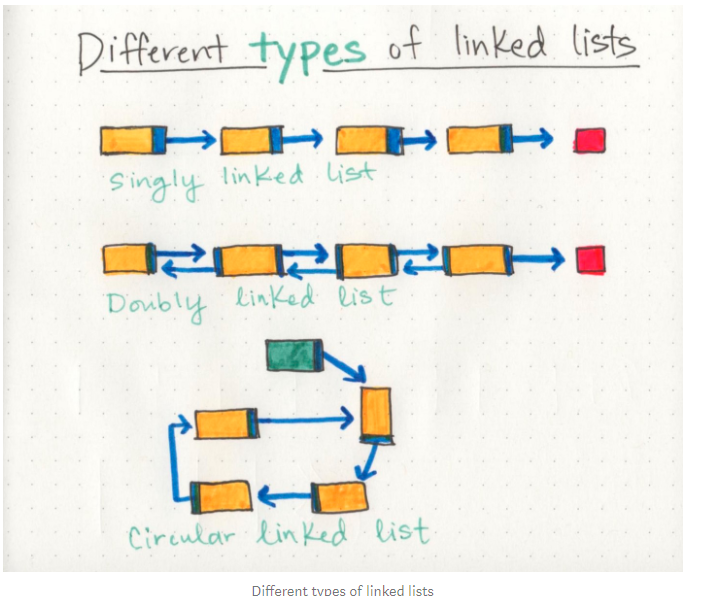 Different types of linked lists
singly linked list
Doubly linked list
Circular linked list.
Different types of linked lists